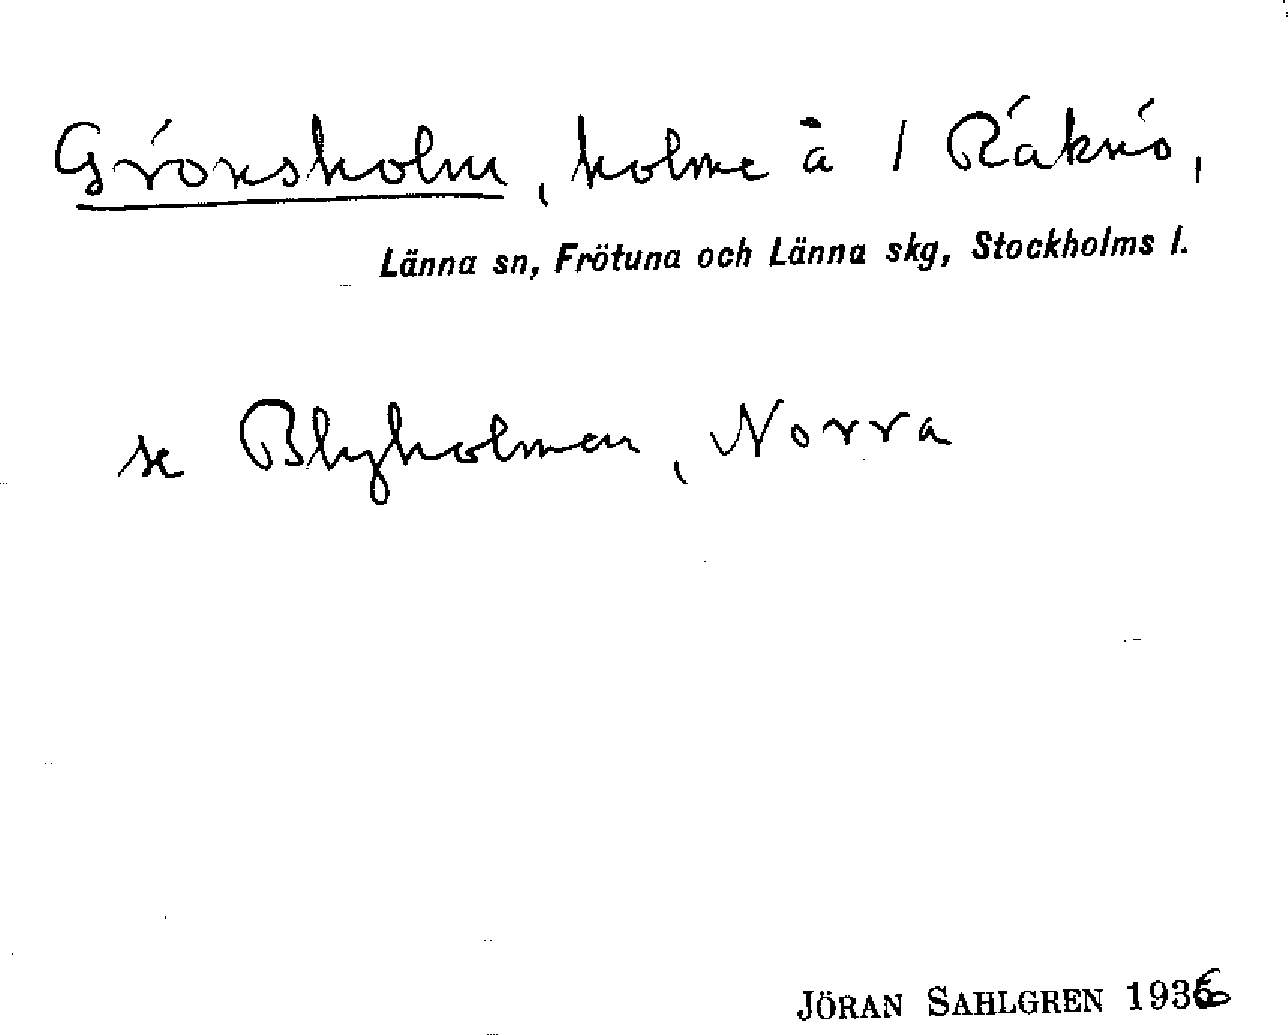 Grönsholm, holme å / Räknö,
Länna sn, Frötuna och Länna skg, Stockholms l.
se Blyholmen, Norra
JÖRAN SAHLGREN 1936